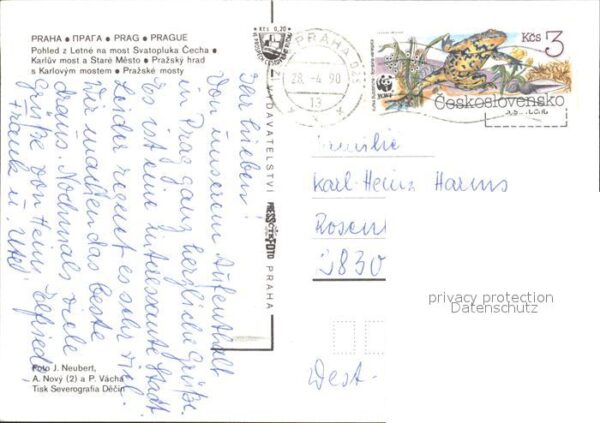 PRAHA • ПРАГА • PRAG • PRAGUE
Pohled z Letné na most Svatopluka Čecha •
Karlův most a Staré Město • Pražský hrad
s Karlovým mostem • Pražské mosty
Ihr Lieben!
Von unserem Aufenthalt
i. Prag ganz herzliche Grüße.
Es ist eine interessante Stadt
Leider regnet es sehr viel.
Wir machen das beste
draus. Nochmals viele
Grüße von Heinz, Elfriede,
Frank u. Uta!
Foto J. Neubert,
A. Nový (2) a P. Vácha
Tisk Severografia Děčín
Kčs 0,20
VYDAVATELSTVÍ
PRESSFOTO
PRAHA
PRAHA
28.-4.90
13
Kčs 3
WWF
Československo
Familie
Karl-Heinz Harms
Rosen
2830
West-
privacy protection
Datenschutz